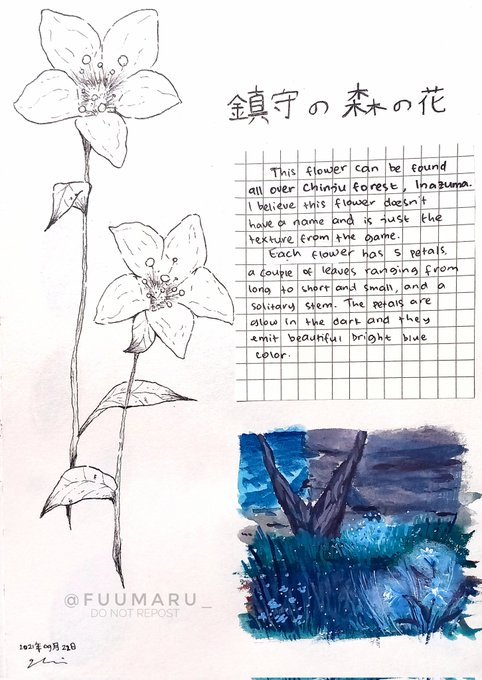 鎮守の森の花
This flower can be found
all over Chinju forest, Inazuma.
I believe this flower doesn't
have a name and is just the
texture from the game.
Each flower has 5 petals,
a couple of leaves ranging from
long to short and small, and a
solitary stem. The petals are
glow in the dark and they
emit beautiful bright blue
color.
@FUUMARU_
DO NOT REPOST
2021年09月22日